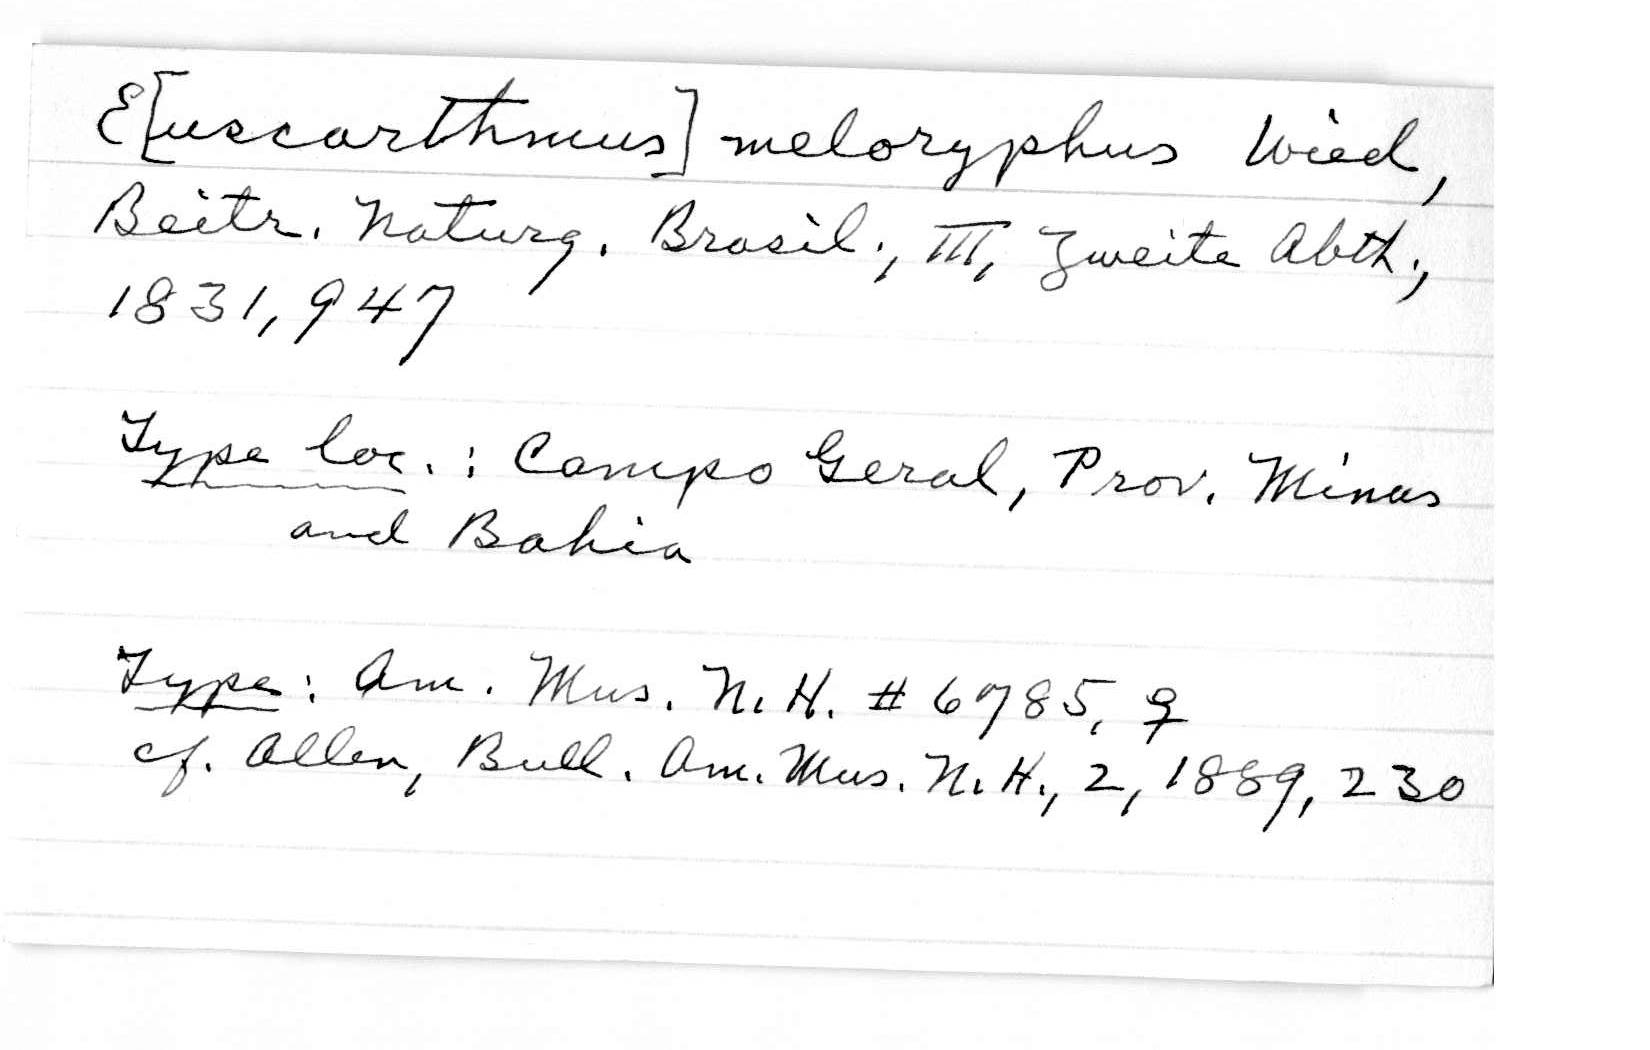 E[uscarthmus] meloryphus Wied,
Beitr. Naturg. Brasil., III, Zweite Abth.,
1831, 947
Type loc.: Campo Geral, Prov. Minas
and Bahia
Type: Am. Mus. N. H. # 6785, ♀
cf. Allen, Bull. Am. Mus. N. H., 2, 1889, 230